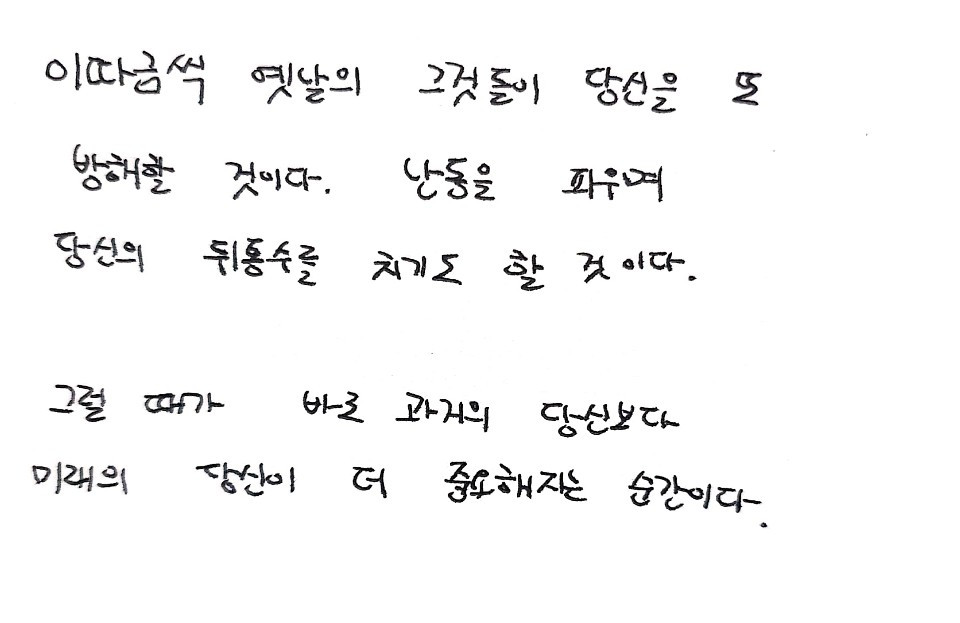 이따금씩 옛날의 그것들이 당신을 또
방해할 것이다. 난동을 파우며
당신의 뒤통수를 치기도 할 것이다.
그럴 때가 바로 과거의 당신보다
미래의 당신이 더 중요해지는 순간이다.